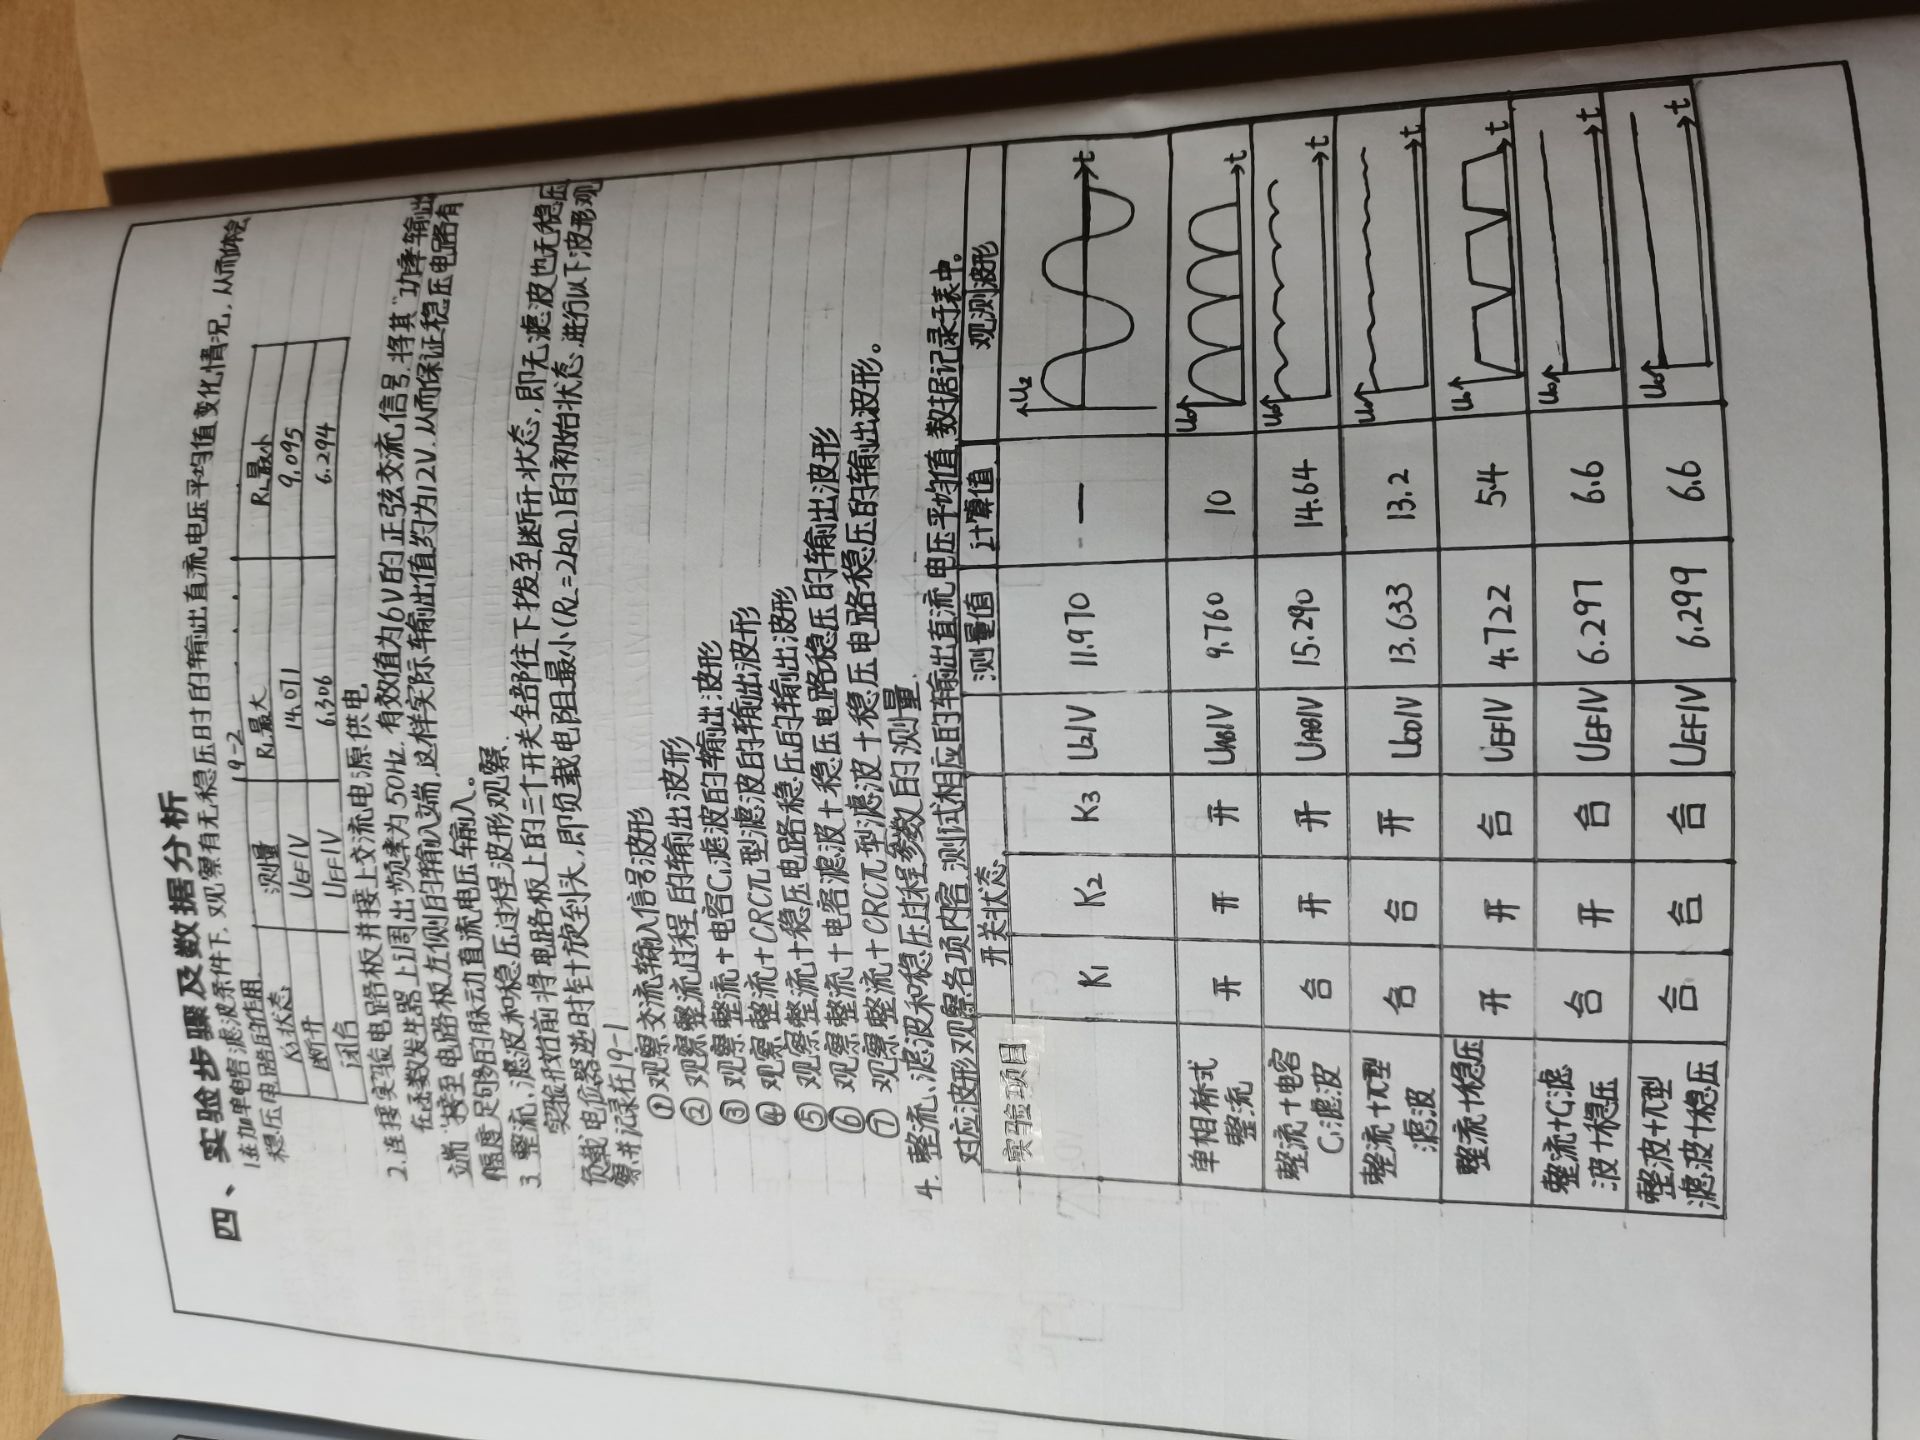 四、实验步骤及数据分析
1.在加单电容滤波条件下,观察有无稳压时的输出直流电压平均值变化情况,从而体会
稳压电路的作用.
19-2
K3状态 测量 RL最大 RL最小
断开 UEF/V 14.071 9.095
闭合 UEF/V 6.306 6.294
2.连接实验电路板并接上交流电源供电
在函数发生器上调出频率为50Hz.有效值为6V的正弦交流信号.将其“功率输出
端”接至电路板左侧的输入端,这样实际输出值约为12V.从而保证稳压电路有
幅度足够多的脉动直流电压输入。
3.整流、滤波和稳压过程波形观察.
实验开始前将电路板上的三个开关全部往下拨至断开状态,即无滤波也无稳压
负载电位器逆时针旋到头,即负载电阻最小(RL=2kΩ)的初始状态,进行以下波形观
察并记录在19-1
①观察交流输入信号波形
②观察整流过程的输出波形
③观察整流+电容C1滤波的输出波形
④观察整流+CRCπ型滤波的输出波形
⑤观察整流+稳压电路稳压的输出波形
⑥观察整流+电容滤波+稳压电路稳压的输出波形
⑦观察整流+CRCπ型滤波+稳压电路稳压的输出波形。
4.整流、滤波和稳压过程参数的测量.
对应波形观察各项内容.测试相应的输出直流电压平均值.数据记录于表中。
实验项目 开关状态 测量值 计算值 观测波形
K1 K2 K3 U2/V 11.970 — U2 t
单相桥式
整流 开 开 开 UAB/V 9.760 10 U0 t
整流+电容
C1滤波 合 开 开 UAB/V 15.290 14.64 U0 t
整流+π型
滤波 合 合 开 UCD/V 13.633 13.2 U0 t
整流+稳压 开 开 合 UEF/V 4.722 5.4 U0 t
整流+C1滤
波+稳压 合 开 合 UEF/V 6.297 6.6 U0 t
整波+π型
滤波+稳压 合 合 合 UEF/V 6.299 6.6 U0 t